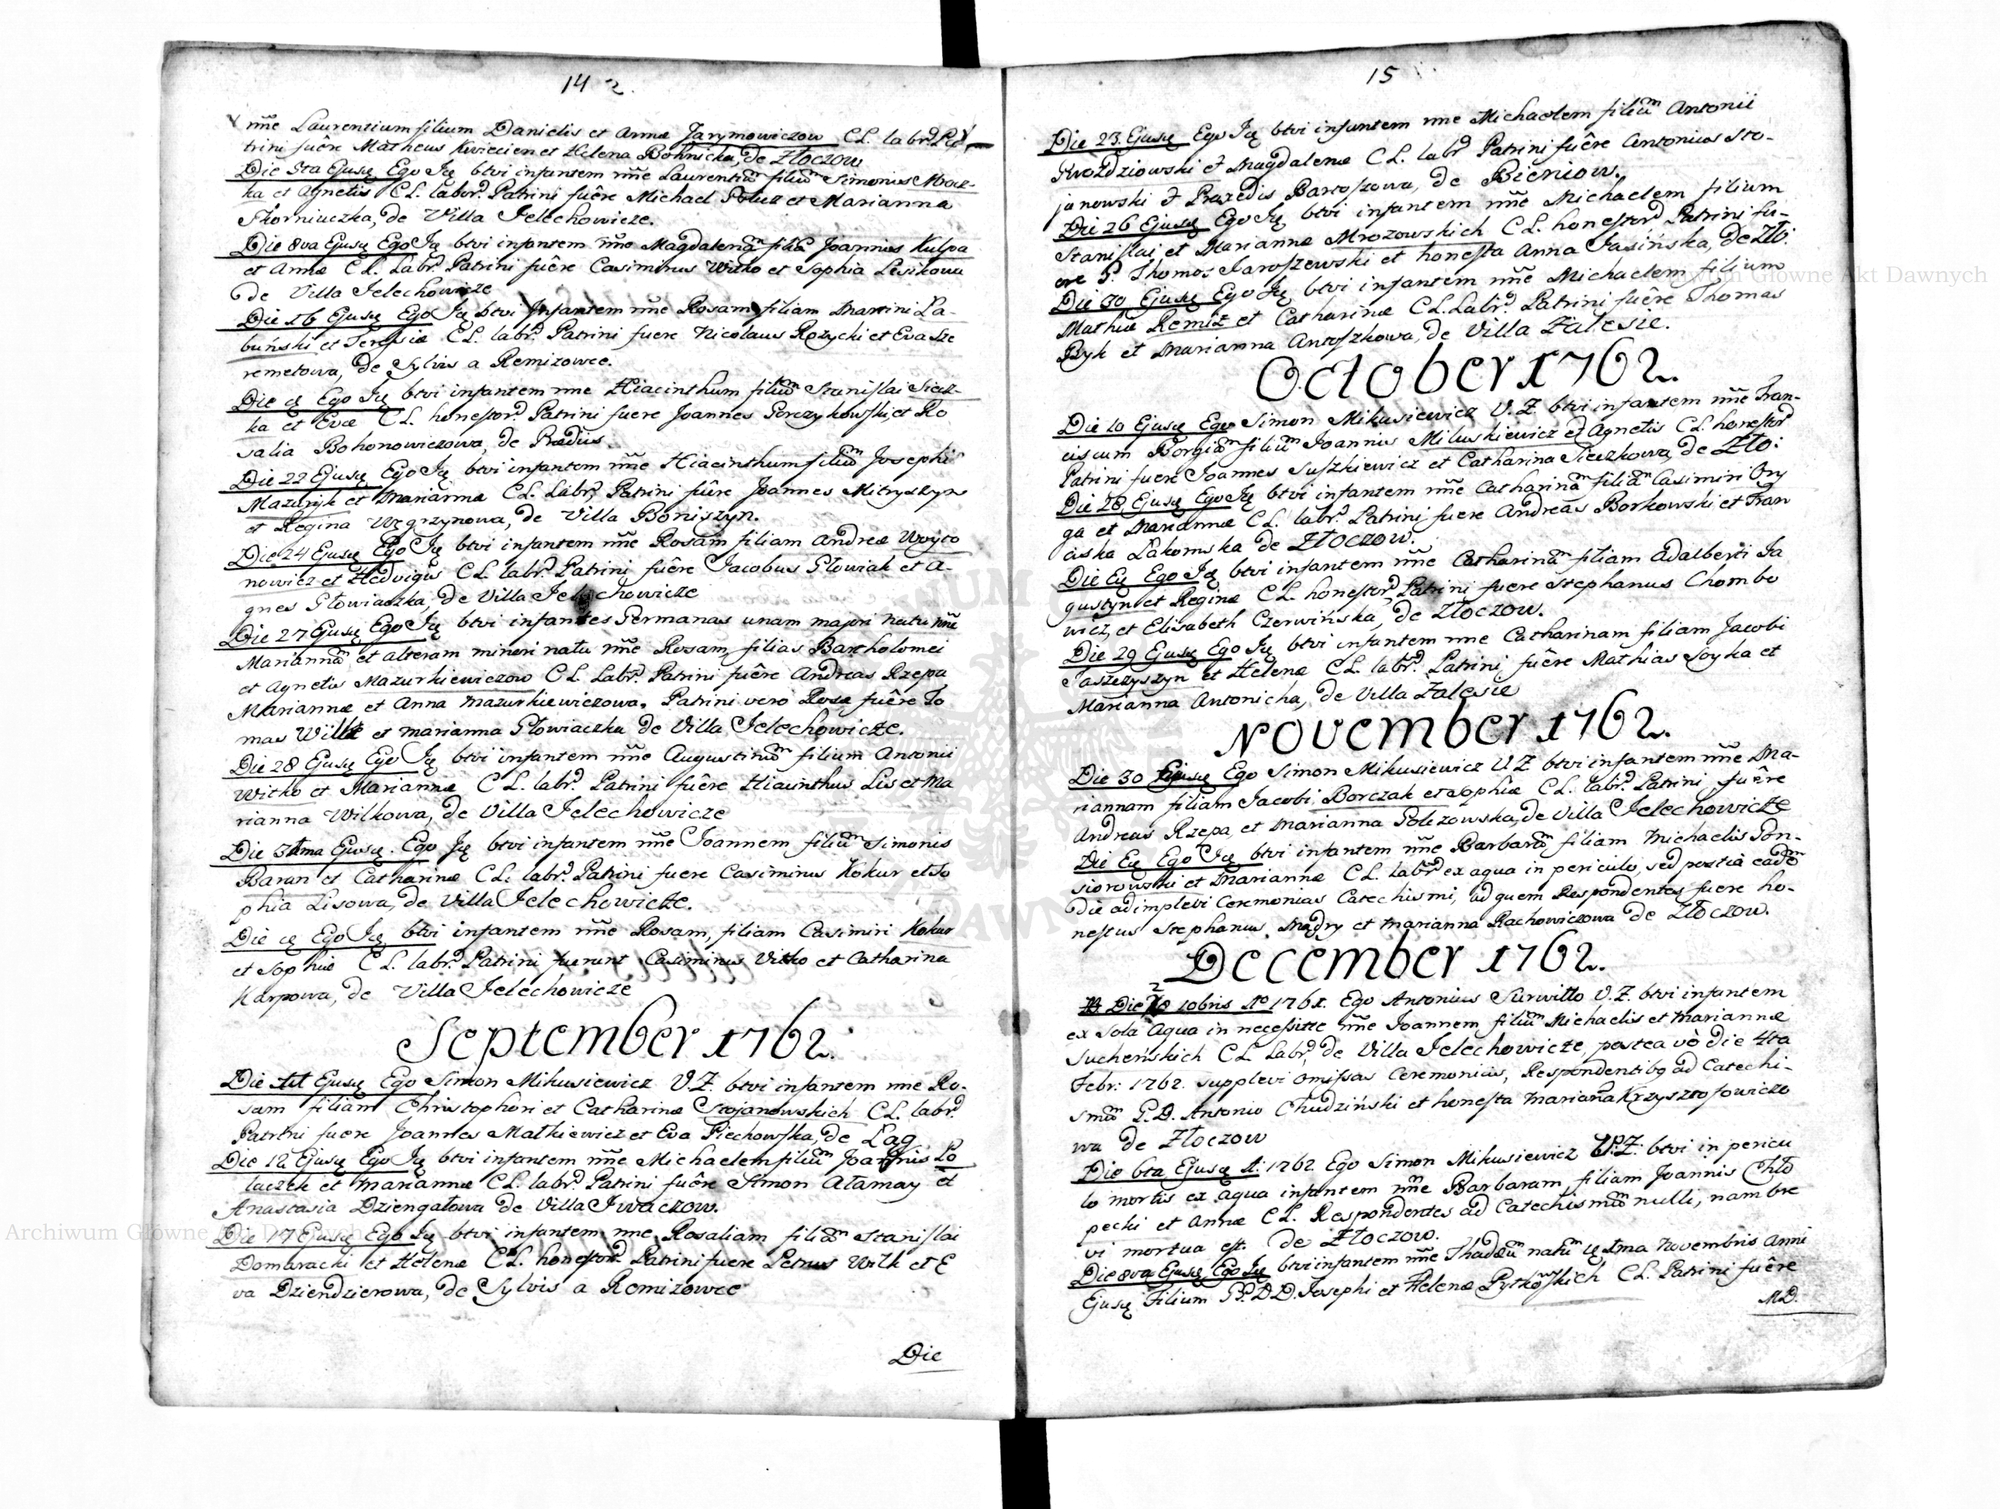 14 2
nne Laurentium filium Danielis et Annæ Jarymowiczow CL. labr. Pa-
trini fuêre Matheus Kwiecien et Helena Bohnicka, de Złoczow
Die 3ta Ejusq Ego Jq btvi infantem nne Laurentiu filiu Simonis
ka et Agnetis CL. labor. Patrini fuêre Michael et Marianna
Skorniuczka, de Villa Jelechowicze.
Die 8va Ejusq Ego Jq btvi infantem nne Magdalena filia Joannis Kulpa
et Annæ CL. Labr. Patrini fuêre Casimirus Witko et Sophia Lisikowa
de Villa Jelechowicze
Die 16 Ejusq Ego Jq btvi Infantem nne Rosam filiam Martini La-
buński et Teresiæ CL. labr. Patrini fuere Nicolaus Rozycki et Eva Sze
remetowa, de Sylvis a Remizowce.
Die eq Ego Jq btvi infantem nne Hiacinthum filiu Stanislai Siecz-
ka et Evæ CL. honestor. Patrini fuere Joannes Porczykowski, et Ro
salia Bohonowiczowa, de Prædiis.
Die 22 Ejusq Ego Jq btvi infantem nne Hiacinthum filiu Josephi
Mazuryk et Mariannæ CL. Labr. Patrini fuêre Joannes Mitryszyn
et Regina Węgrzynowa, de Villa Boniszyn.
Die 24 Ejusq Ego Jq btvi infantem nne Rosam filiam Andreæ Woyto
nowicz et Hedvigis CL. labr. Patrini fuêre Jacobus Głowiak et A-
gnes Głowiaczka, de Villa Jelechowicze
Die 27 Ejusq Ego Jq btvi infantes Germanas unam majori natu nne
Marianna et alteram minori natu nne Rosam, filias Bartholomei
et Agnetis Mazurkiewiczow CL. Labr. Patrini fuêre Andreas Rzepa
Mariannæ et Anna Mazurkiewiczowa. Patrini vero Rosæ fuêre To
mas Wilk et Marianna Głowiaczka de Villa Jelechowicze.
Die 28 Ejusq Ego Jq btvi infantem nne Augustinu filium Antonii
Witko et Mariannæ CL. labr. Patrini fuêre Hiacinthus Lis et Ma
rianna Wilkowa, de Villa Jelechowicze
Die 31ma Ejusq. Ego Jq btvi infantem nne Joannem filiu Simonis
Baran et Catharinæ CL. labr. Patrini fuere Casimirus Kokur et So
phia Lisowa, de Villa Jelechowicze.
Die eq Ego Jq btvi infantem nne Rosam, filiam Casimiri Kokur
et Sophiæ CL. labr. Patrini fuerunt Casimirus Vitko et Catharina
Karpowa, de Villa Jelechowicze
September 1762.
Die 1t Ejusq Ego Simon Mikusiewicz V.Z. btvi infantem nne Ro-
sam filiam Christophori et Catharinæ Stojanowskich CL. labr.
Patrini fuere Joannes Matkiewicz et Eva Piechowska, de Łag.
Die 12 Ejusq Ego Jq btvi infantem nne Michaelem filiu Joannis Po
laczek et Mariannæ CL. labr. Patrini fuêre Simon Atamay et
Anastasia Dziengalowa de Villa Jwaczow.
Die 17 Ejusq Ego Jq btvi infantem nne Rosaliam filia Stanislai
Domaracki et Helenæ CL. honestor. Patrini fuere Petrus Wilk et E
va Dziendzierowa, de Sylvis a Remizowce
Die
15
Die 23 Ejusq Ego Jq btvi infantem nne Michaelem filiu Antonii
Gwoździowski et Magdalenæ CL. labr. Patrini fuêre Antonius Sto-
janowski et Praxedis Bartoszowa, de Bieniow.
Die 26 Ejusq, Ego Jq, btvi infantem nne Michaelem filium
Stanislai, et Mariannæ Mrozowskich CL. honestor. Patrini fu-
ere P. Thomas Jaroszewski et honesta Anna Jasińska, de Zło:
Die 30 Ejusq Ego Jq btvi infantem nne Michaelem filium
Mathiæ Remiz et Catharinæ CL. Labr. Patrini fuêre Thomas
Byk et Marianna Antoszkowa, de Villa Zalesie.
October 1762.
Die 10 Ejusq Ego Simon Mikusiewicz V.Z. btvi infantem nne Fran-
ciscum Borgia filiu Joannis Miluskiewicz et Agnetis CL. honestor
Patrini fuere Joannes Suszkiewicz et Catharina Sieczkowa, de Zło:
Die 28 Ejusq Ego Jq btvi infantem nne Catharina filia Casimiri Ory
ga et Mariannæ CL. labr. Patrini fuere Andreas Borkowski et Fran
ciska Łakomska de Złoczow.
Die Eq Ego Jq btvi infantem nne Catharina filiam Adalberti Ja
gustyn et Reginæ CL. honestor. Patrini fuere Stephanus Chombo
wicz, et Elisabeth Czerwińska, de Złoczow.
Die 29 Ejusq Ego Jq btvi infantem nne Catharinam filiam Jacobi
Jaszczyszyn et Helenæ CL. labr. Patrini fuêre Mathias Soyka et
Marianna Antonicha, de Villa Zalesie
November 1762.
Die 30 Ejusq Ego Simon Mikusiewicz V.Z. btvi infantem nne Ma-
riannam filiam Jacobi, Borczak et Sophiæ CL. labr. Patrini, fuêre
Andreas Rzepa, et Marianna Polizowska, de Villa Jelechowicze
Die Eq Ego Jq btvi infantem nne Barbara filiam Michaelis Gon-
siorowski et Mariannæ CL. labr. ex aqua in periculo, sed postea eade
die adimplevi Ceremonias Catechismi, ad quem Respondentes fuere ho-
nestus Stephanus Mądry et Marianna Rachowiczowa de Złoczow.
December 1762.
Die 10bris Ao 1761. Ego Antonius Surwiłło V.Z. btvi infantem
ex Sola Aqua in necessitte nne Joannem filiu Michaelis et Mariannæ
Sucheńskich CL. Labr. de Villa Jelechowicze, postea vo die 4ta
Febr: 1762. supplevi omissas Ceremonias, Respondentibq ad Catechi-
smu G.D. Antonio Chudziński et honesta Mariana Krzysztofowiczo
wa de Złoczow
Die 6ta Ejusq A: 1762 Ego Simon Mikusiewicz V.Z. btvi in pericu
lo mortis ex aqua infantem nne Barbaram, filiam Joannis Chło
pecki et Annæ CL. Respondentes ad Catechismu nulli, nam bre
vi mortua est. de Złoczow.
Die 8va Ejusq Ego Jq btvi infantem nne Thadæu natu 1ma Novembris Anni
Ejusq Filium PP. D.D. Josephi et Helenæ Pytkowskich CL. Patrini fuêre
M.D.
Archiwum Główne Akt Dawnych
Archiwum Główne Akt Dawnych